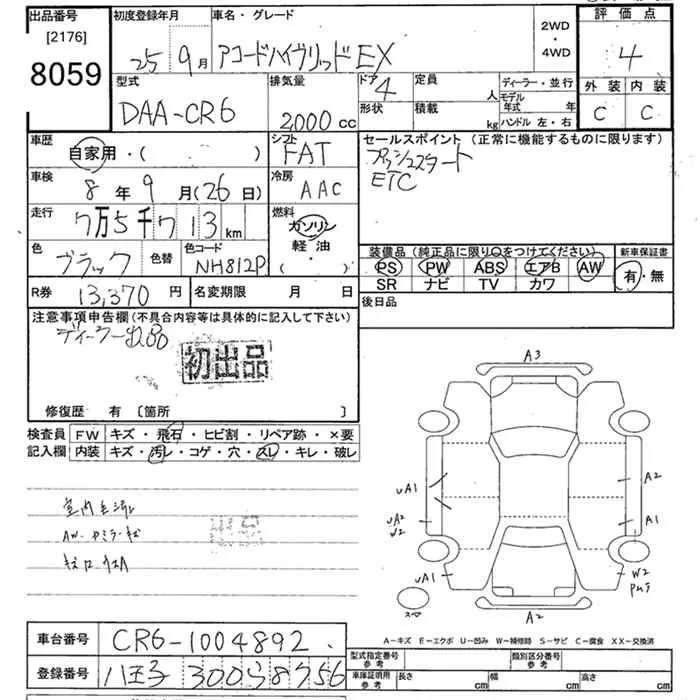 出品番号
[2176]
8059
初度登録年月
25 9月
車名・グレード
アコードハイブリッド EX
2WD
・
4WD
評価点
4
外装 内装
C C
型式
DAA-CR6
排気量
2,000 cc
ドア 4
形状
定員 人
積載 kg
ディーラー・並行
モデル年式 年
ハンドル 左・右
車歴
自家用・( )
シフト
FAT
セールスポイント (正常に機能するものに限ります)
プッシュスタート
ETC
車検
8年9月(26日)
冷房
AAC
走行
7万5千713km
燃料
ガソリン
軽油
( ・ )
色
ブラック
色替
色コード
NH812P
装備品 (純正品に限り〇をつけてください)
PS PW ABS エアB AW
SR ナビ TV カワ
新車保証書
有・無
R券 13,370円
名変期限 月 日
後日品
注意事項申告欄 (不具合内容等は具体的に記入して下さい)
初出品
修復歴 有 [箇所 ]
検査員
記入欄
FW キズ・飛石・ヒビ割・リペア跡・×要
内装 キズ・汚レ・コゲ・穴・スレ・キレ・破レ
A3
uA1
uA2
W2
uA1
A2
A1
W2
A2
スペア
A-キズ E-エクボ U-凹み W-補修跡 S-サビ C-腐食 XX-交換済
車台番号 CR6-1004892
登録番号 八王子 300 8756
型式指定番号
参考
類別区分番号
参考
車庫証明用
参考
長さ cm
幅 cm
高さ cm